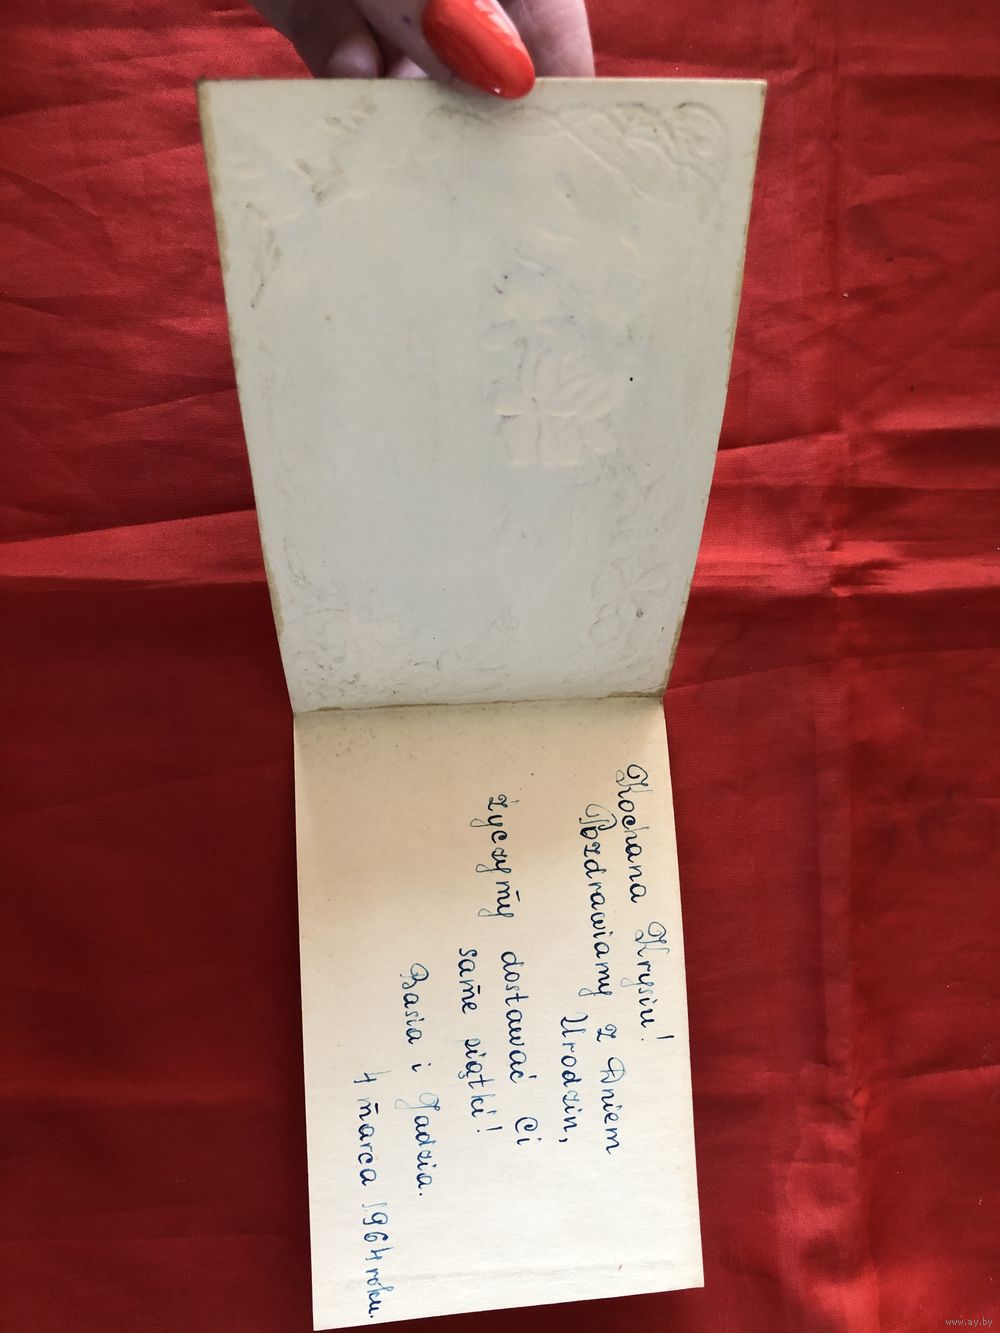 Kochana Krysiu!
Pozdrawiamy z Dniem
Urodzin,
życzymy dostawać Ci
same piątki!
Basia i Jadzia.
4 marca 1964 roku.
www.ay.by